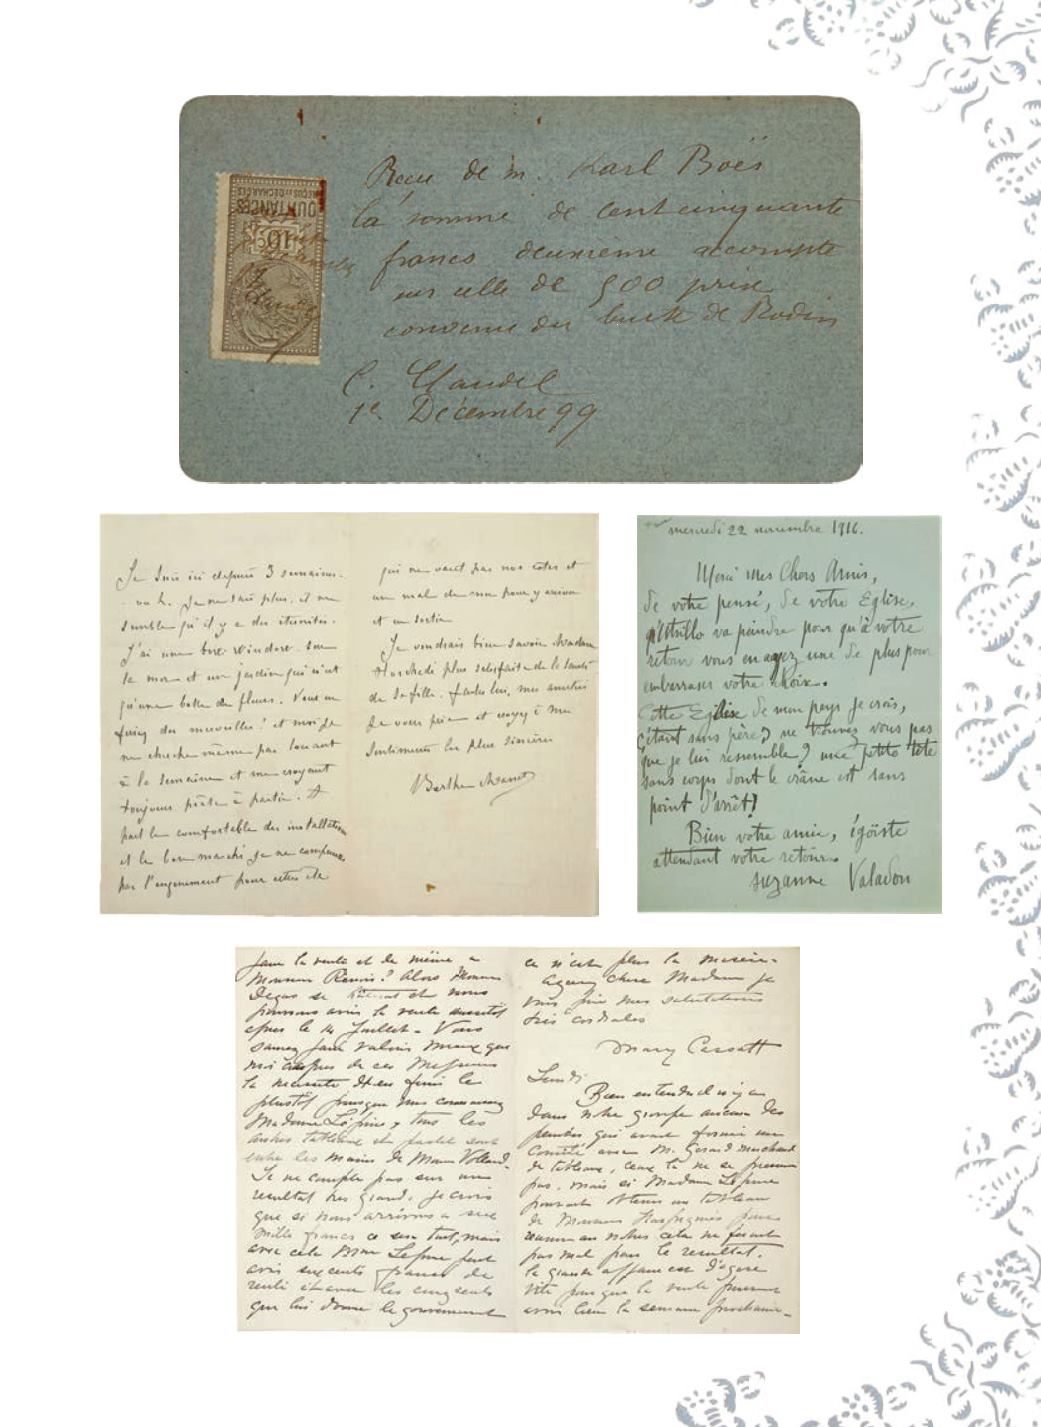 QUITTANCES
REÇUS ET DÉCHARGES
10c
Reçu de m. Karl Boës
la somme de cent cinquante
francs deuxième accompte
sur celle de 500 prix
convenu du buste de Rodin
C. Claudel
1er Décembre 99
Je suis ici depuis 3 semaines.
ou 4. Je ne sais plus. il me
semble qu'il y a des éternités.
J'ai une bow window sur
la mer et un jardin qui n'est
qu'une botte de fleurs. Vous en
feriez des merveilles! et moi je
ne cherche même pas louant
à la semaine et me croyant
toujours prête à partir. A
part le comfortable des installations
et le bon marché je ne comprends
pas l'engouement pour cette île
qui ne vaut pas nos côtes et
un mal de mer pour y arriver
et en sortir
Je voudrais bien savoir Madame
Hoschedé plus satisfaite de la santé
de sa fille. faites lui, mes amitiés
je vous prie et croyez à mes
sentiments les plus sincères
Berthe Manet
mercredi 22 novembre 1916.
Merci mes Chers Amis,
de votre pensé, de votre Eglise,
qu'Utrillo va peindre pour qu'à votre
retour vous en ayez une de plus pour
embarrasser votre choix.
Cette Eglise de mon pays je crois,
(étant sans père) ne trouvez vous pas
que je lui ressemble? une petite tête
sans corps dont le crâne est sans
point d'arrêt!
Bien votre amie, égöiste
attendant votre retour.
suzanne Valadon
faire la vente et de même a
Monsieur Renoir? Alors Monsieur
Degas se hâterait et nous
pourrons avoir la vente aussitôt
apres le 14 Juillet - Vous
saurez faire valoir mieux que
moi aupres de ces Messieurs
la necessité d'en finir le
plustôt puisque nous connaissons
Madame Lépine, tous les
autres tableaux et pastel sont
entre les mains de Mons Vollard.
Je ne compte pas sur un
resultat tres grand, je crois
que si nous arrivons a six
mille francs ce sera tout, mais
avec cela Mme Lepine peut
avoir six cents francs de
rente et avec les cinq cents
que lui donne le gouvernement
ce n'est plus la misère.
Agreez chere Madame je
vous prie mes salutations
très cordiales
Mary Cassatt
Lundi
Bien entendu il n'y a
dans notre groupe aucun des
peintres qui avait formé un
Comité avec M. Gerard marchand
de tableaux, ceux la ne se pressent
pas. mais si Madame Lepine
pouvait obtenir un tableau
de Monsieur Harpignies pour
reunir au notres cela ne ferait
pas mal pour le resultat.
la grande affaire est d'agir
vite pour que la vente puisse
avoir lieu la semaine prochaine-